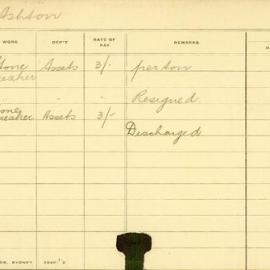 Ashton
WORK DEP'T RATE OF PAY REMARKS
tone Assets 3/- person
reaker
" " Resigned.
tone
reaker Assets 3/-
Discharged
SYDNEY